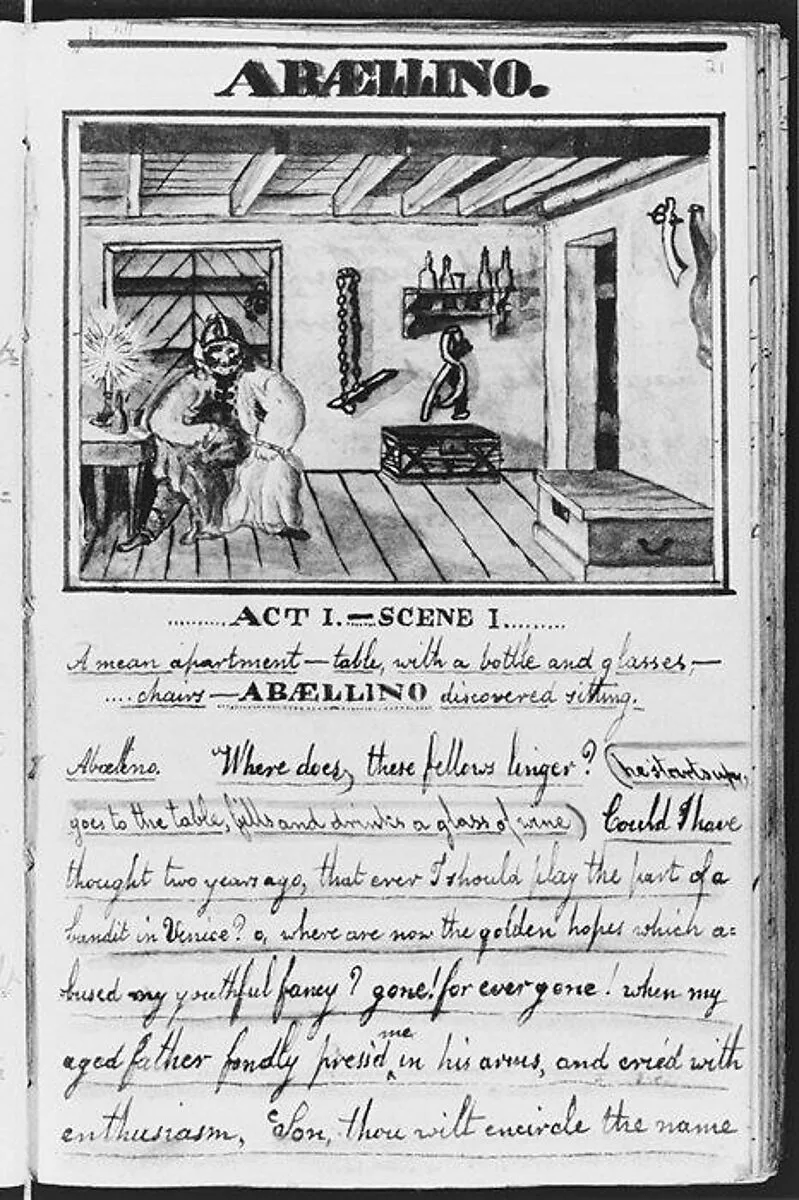 21
ABÆLLINO.
ACT I.—SCENE I.
A mean apartment—table, with a bottle and glasses,—
chairs—ABÆLLINO discovered sitting.
Abællino. "Where does, these fellows linger? (he starts up,
goes to the table, fills and drinks a glass of wine) Could I have
thought two years ago, that ever I should play the part of a
bandit in Venice? o, where are now the golden hopes which a=
bused my youthful fancy? gone! for ever gone! when my
aged father fondly press'd me in his arms, and cried with
enthusiasm, Son, thou wilt encircle the name